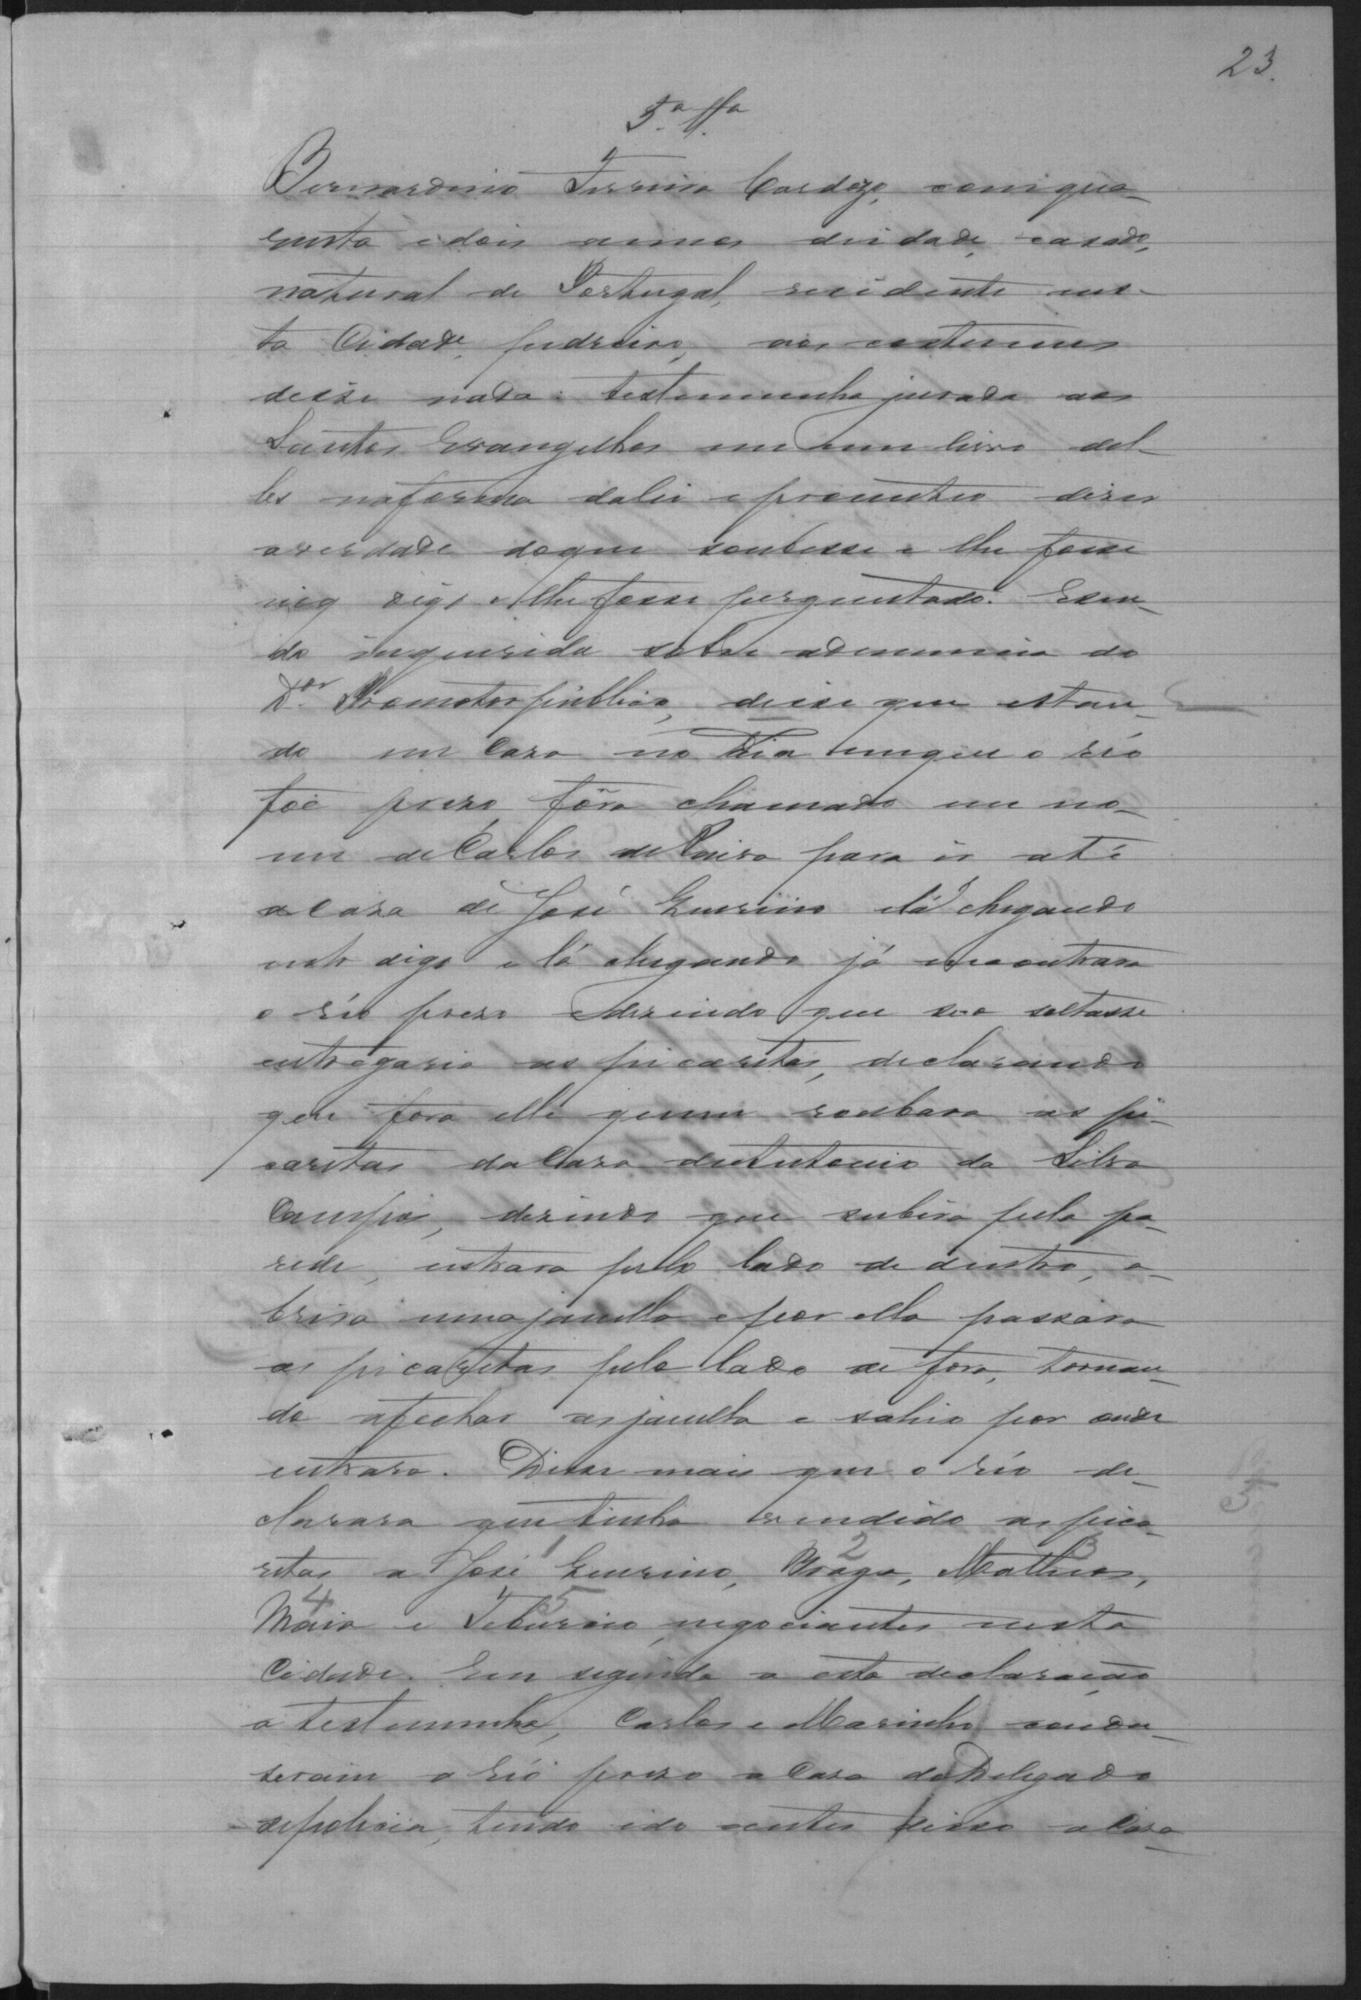 23.
5.a Tta
Bernardino Ferreira Cardozo, com qua-
renta e dois annos deidade, casado,
natural de Portugal, residente nes-
ta Cidade, pedreiro, aos costumes
disse nada: testemunha jurada aos
Santos Evangelhos em um livro del-
les naforma dalei e prometteo dizer
averdade doque soubesse e lhe fosse
inq digo elhe fosse perguntado. Esen-
do inquerida sobre adenuncia do
Dor. Promotor publico, disse que estan-
do em Caza no dia emque o réo
foi prezo, fôra chamado em no-
me deCarlos dePaiva para ir até
aCaza de José Guerino elá chegando
ento digo e lá chegando já encontrara
o réo prezo edizendo que seo soltasse
entregaria as picaretas, declarando
que fora elle quem roubara as pi-
caretas daCaza deAntonio da Silva
Campos, dizendo que subira pela pa-
rede, entrara pelo lado de dentro, a-
brira umajanella epor ella passara
as picaretas pelo lado de fora, tornan-
do afechar asjanella e sahio por onde
entrara. Disse mais que o réo de-
clarara quetinha vendido aspica-
retas a José Guerino, Braga, Matheos,
1 2 3
Maia e Teburcio, negociantes nesta
4 5
Cidade. Em seguida a esta declaração
a testemunha, Carlos e Marinho condu-
seram o réo prezo a Caza doDelegado
depolicia, tendo ido antes disso aCaza